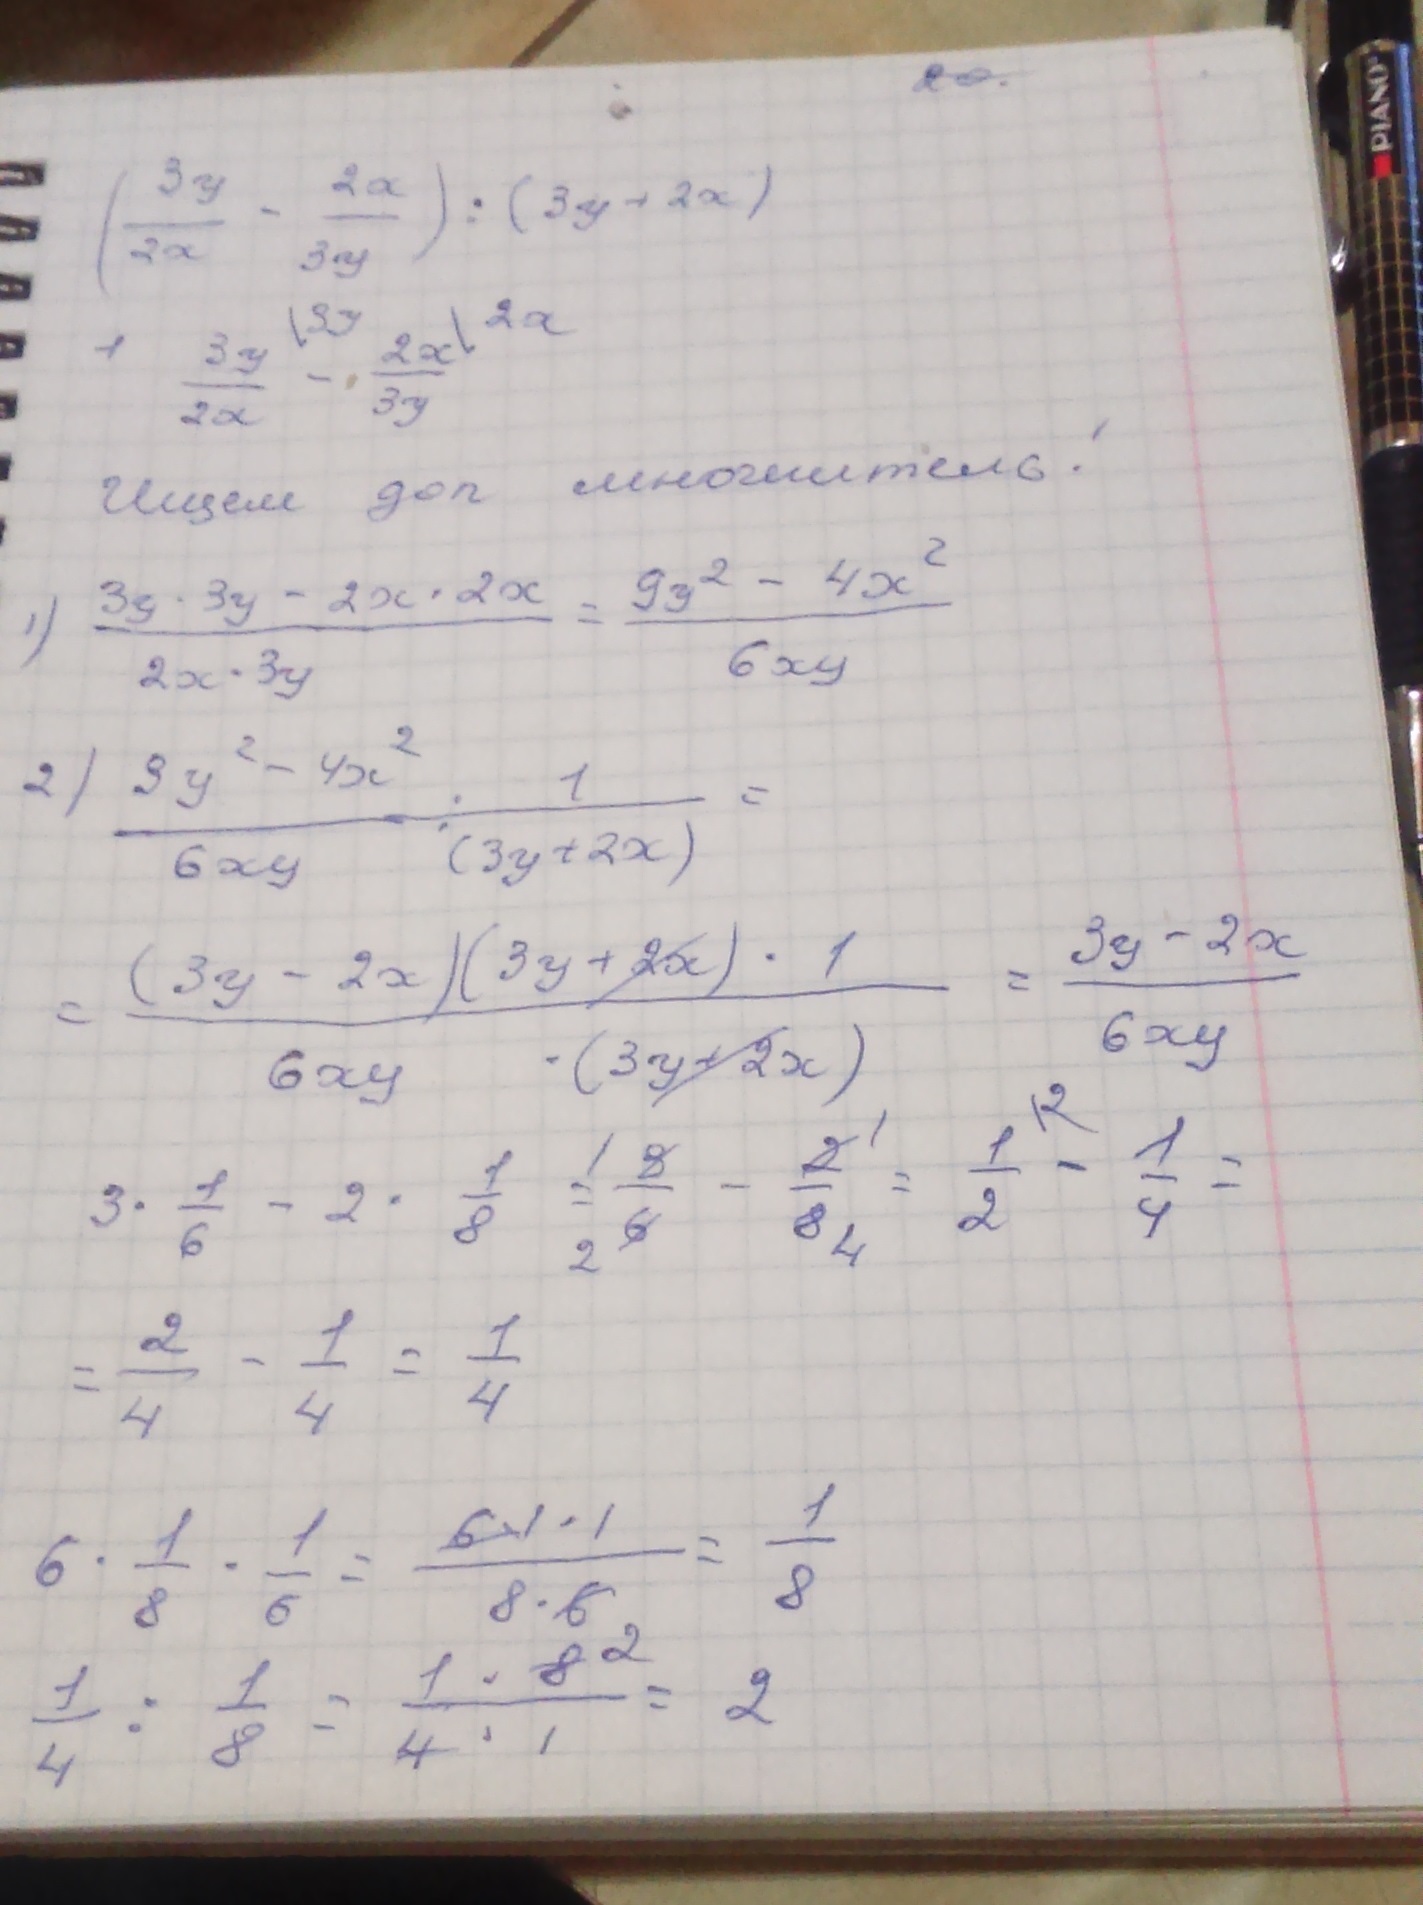 20.
PIANO
(3y/2x - 2x/3y) : (3y + 2x)
1 3y/2x \3y - 2x/3y \2x
Ищем доп множитель!
1) (3y · 3y - 2x · 2x)/(2x · 3y) = (9y² - 4x²)/(6xy)
2) (9y² - 4x²)/(6xy) : 1/(3y + 2x) =
= ((3y - 2x)(3y + 2x) · 1)/(6xy · (3y + 2x)) = (3y - 2x)/(6xy)
3 · 1/6 - 2 · 1/8 = 3/6 - 2/8 = 1/2 \2 - 1/4 =
= 2/4 - 1/4 = 1/4
6 · 1/8 · 1/6 = (6 · 1 · 1)/(8 · 6) = 1/8
1/4 : 1/8 = (1 · 8 2)/(4 · 1) = 2